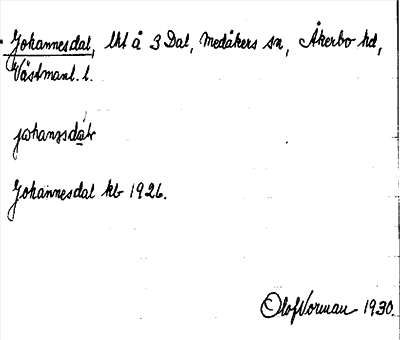 Johannesdal, lht å 3 Dal, Medåkers sn, Åkerbo hd,
Västmanl. l.
johanəsdàl
Johannesdal kb 1926.
Olof Norman 1930.